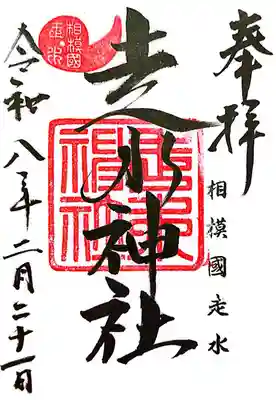 奉拝
相模國走水
走水神社
相模國
走水
令和八年二月二十一日